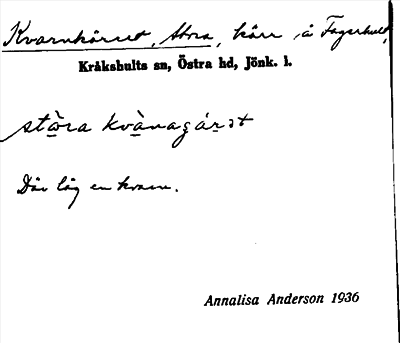 Kvarnkärret, Stora, kärr å Fagerhult,
Kråkshults sn, Östra hd, Jönk. l.
stòra kvànagárət
Där låg en kvarn.
Annalisa Anderson 1936